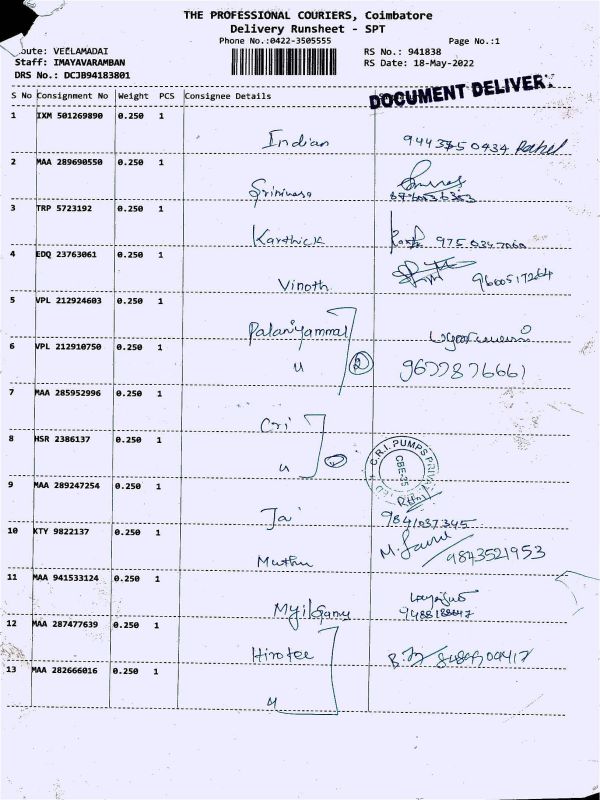 THE PROFESSIONAL COURIERS, Coimbatore
Delivery Runsheet - SPT
Phone No.:0422-3505555 Page No.:1
Route: VEELAMADAI RS No.: 941838
Staff: IMAYAVARAMBAN RS Date: 18-May-2022
DRS No.: DCJB94183801
DOCUMENT DELIVER
S No Consignment No Weight PCS Consignee Details
1 IXM 501269890 0.250 1
Indian 9443750434 Rahul
2 MAA 289690550 0.250 1
Srinivasa
3 TRP 5723192 0.250 1
Karthick
4 EDQ 23763061 0.250 1
Vinoth 9600517264
5 VPL 212924603 0.250 1
Palaniyammal
6 VPL 212910750 0.250 1
u 2 9677876661
7 MAA 285952996 0.250 1
Cri
8 HSR 2386137 0.250 1
u
C.R.I. PUMPS PRIVATE
CBE-35
9 MAA 289247254 0.250 1
Jai 9841037345
10 KTY 9822137 0.250 1
Muthu 9843521953
11 MAA 941533124 0.250 1
Mylsamy
12 MAA 287477639 0.250 1
Hirotec
13 MAA 282666016 0.250 1
u